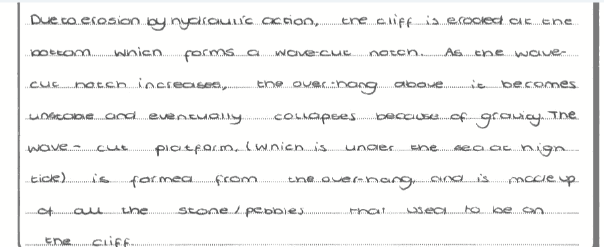 Due to erosion by hydraulic action, the cliff is eroded at the
bottom which forms a wave-cut notch. As the wave-
cut notch increases, the over-hang above it becomes
unstable and eventually collapses because of gravity. The
wave-cut platform, (which is under the sea at high
tide) is formed from the over-hang, and is made up
of all the stone/pebbles that used to be on
the cliff.